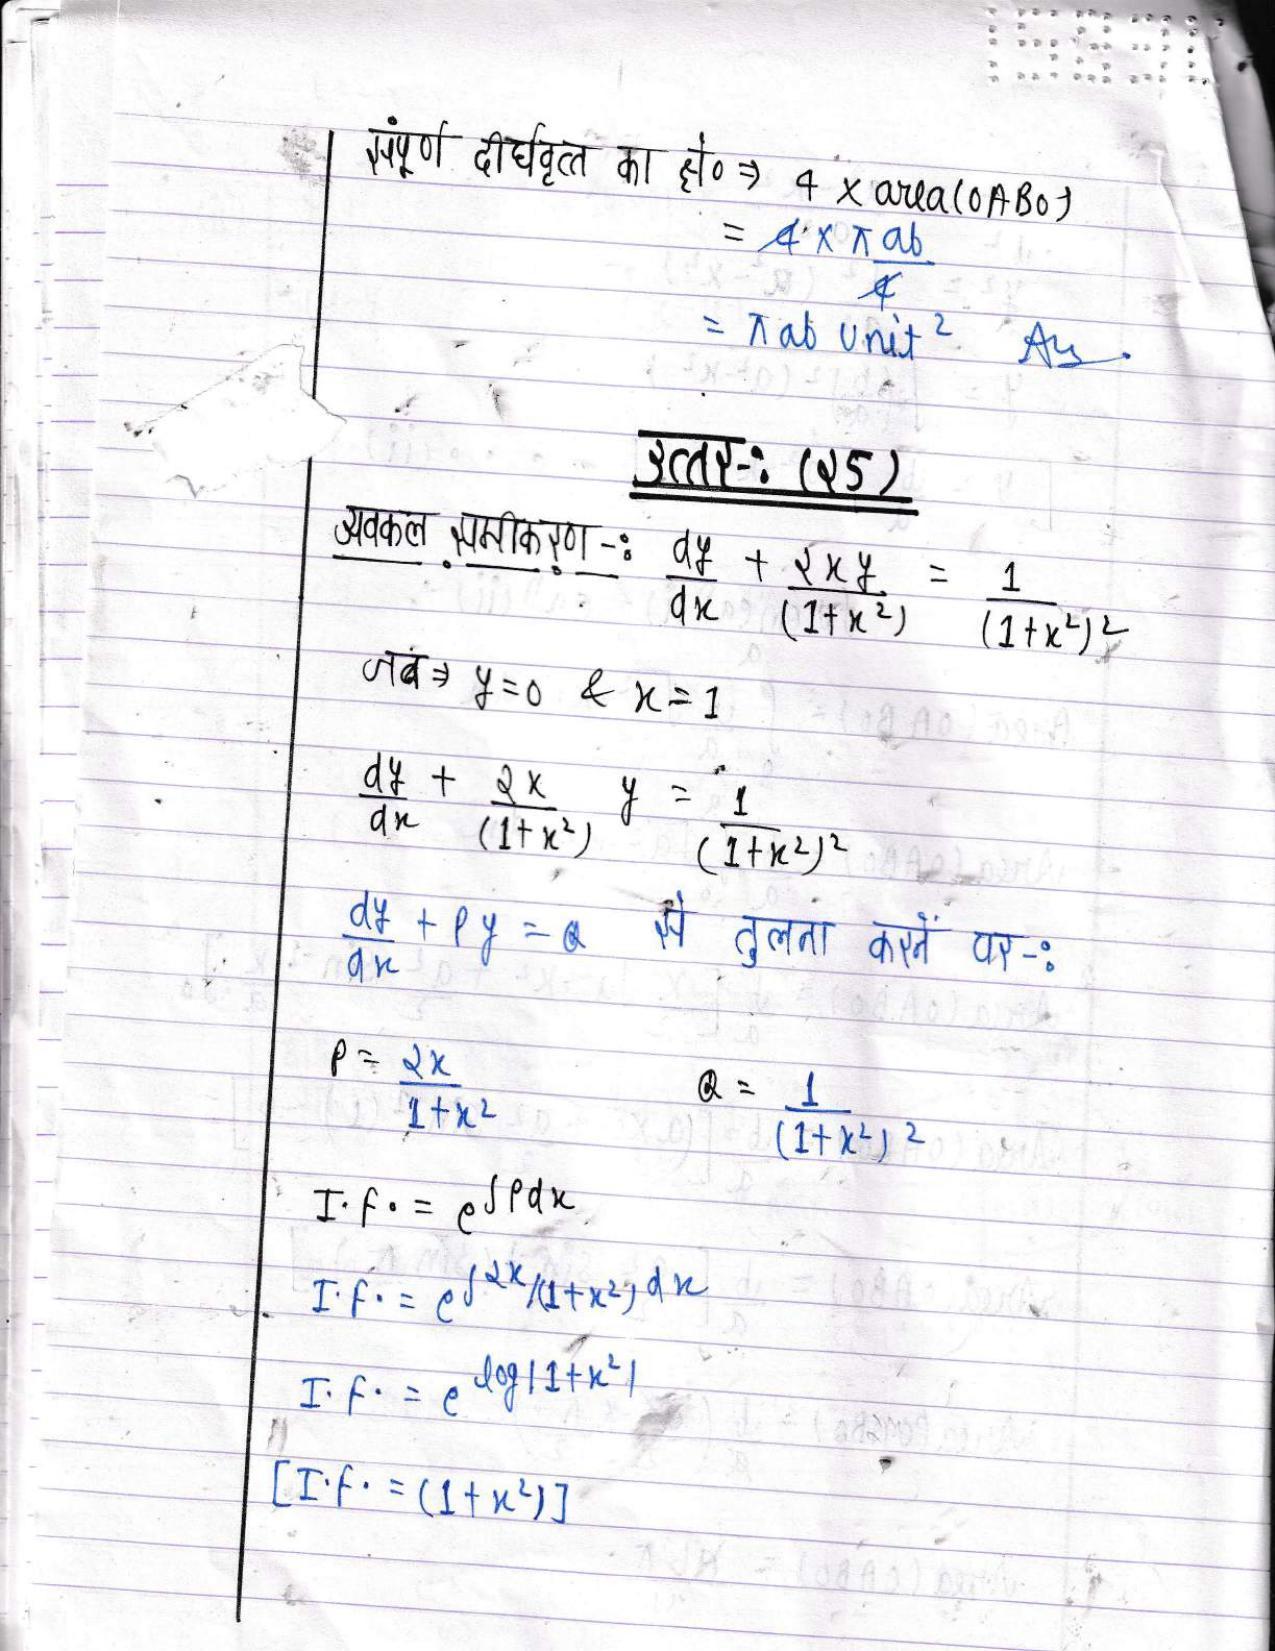 संपूर्ण दीर्घवृत्त का क्षे० ⇒ 4 × area(OABO)
= 4 × πab/4
= πab unit² Ans.
उत्तर-: (25)
अवकल समीकरण-: dy/dx + 2xy/(1+x²) = 1/(1+x²)²
जब ⇒ y=0 & x=1
dy/dx + 2x/(1+x²) y = 1/(1+x²)²
dy/dx + Py = Q से तुलना करनें पर-:
P = 2x/1+x² Q = 1/(1+x²)²
I.f. = e^∫Pdx
I.f. = e^∫2x/(1+x²)dx
I.f. = e^log|1+x²|
[I.f. = (1+x²)]